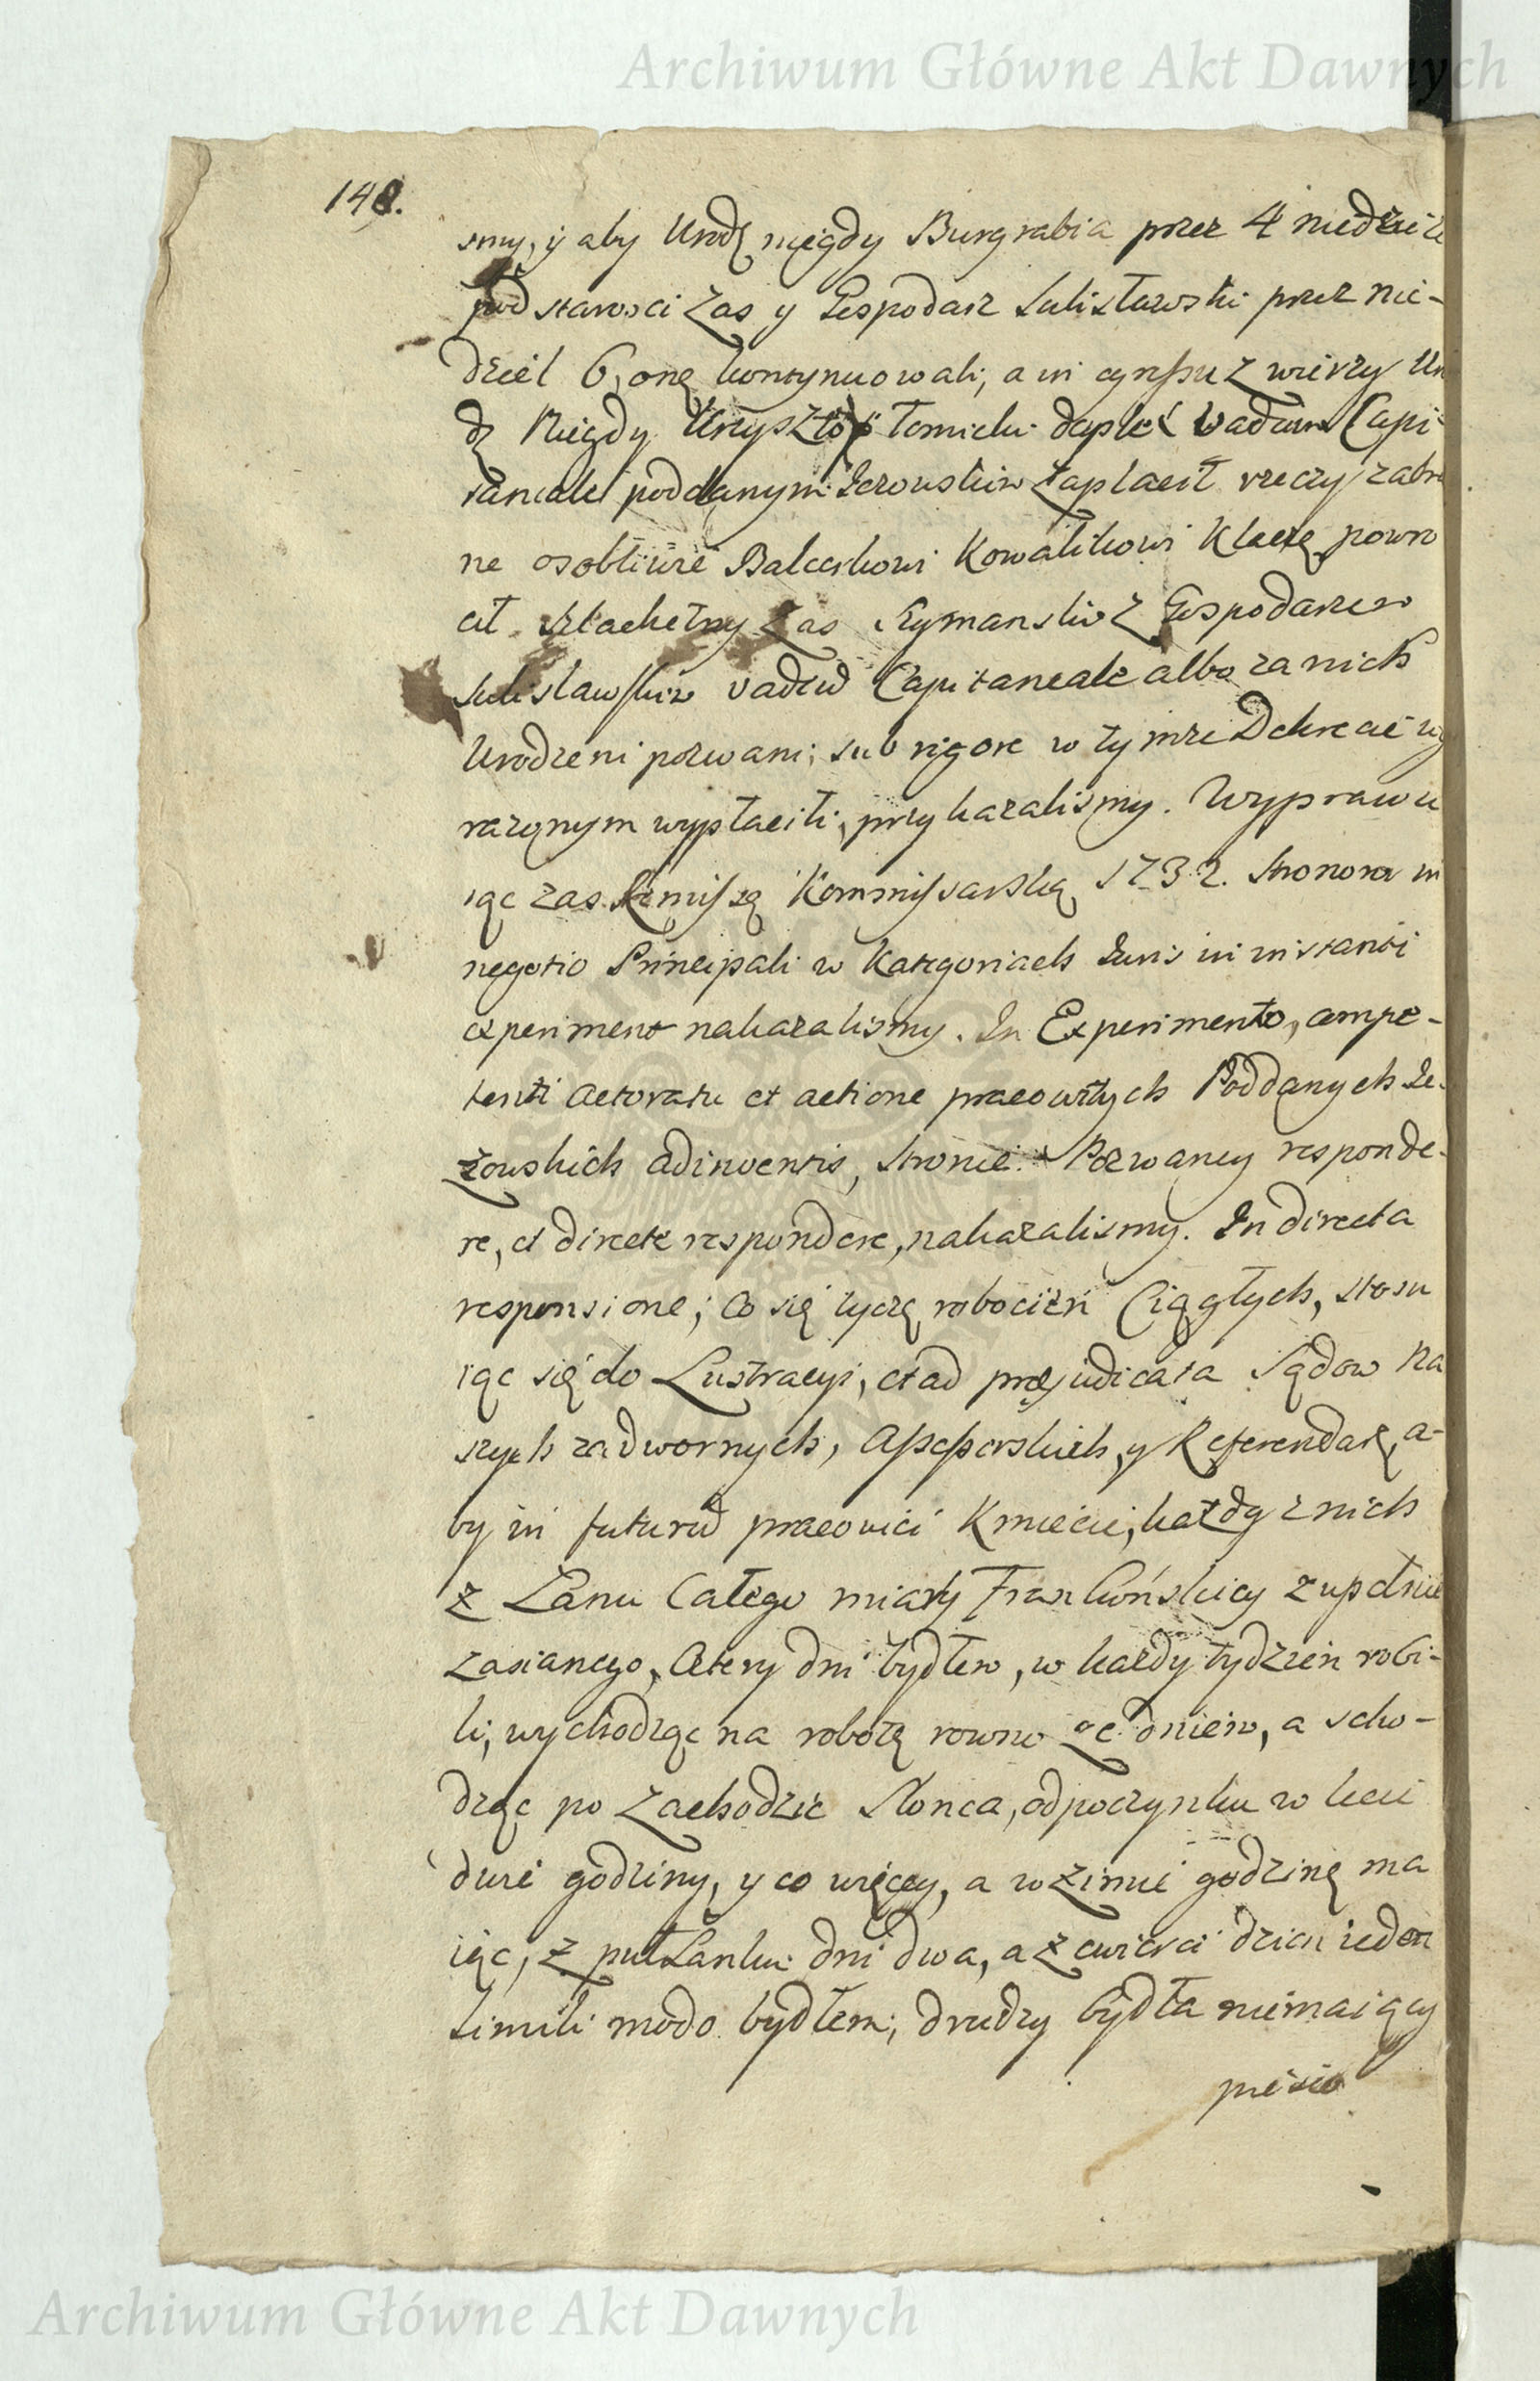 Archiwum Główne Akt Dawnych
148.
smy, y aby Urodz niegdy Burgrabia przez 4 niedziele
pod starosci zas y Gospodarz Sulisławski przez nie-
dziel 6, onę kontynuowali, a in egressu z wieży Uro
dz Niegdy Krzysztof Tomicki duplex vadium Capi
taneale poddanym Jezowskim zapłacił rzeczy zabra
ne osobliwie Balcerkowi Kowalikowi Klaczę powro
cił. Szlachetny zas Szymanski z Gospodarzem
Sulisławskim vadiũ Capitaneale albo za nich
Urodzeni pozwani, sub rigore w tymze Dekrecie wy
razonym wypłacili, przykazalismy. Wyprawu
iąc zas Remissę Kommissarską 1732. Stronom in
negotio Principali w Kategoriach Juris in instanti
experiment nakazalismy. In Experimento, compe-
tenti Actoratu et actione pracowitych Poddanych Je-
żowskich adinventis, Stronie Pozwaney responde-
re, et directe respondere, nakazalismy. In directa
responsione; Co się tycze robocizn Ciągłych, stosu
iąc się do Lustracyi, et ad præjudicata Sądow Na
szych zadwornych, Assessorskich, y Referendar., a-
by in futurũ pracowici Kmiecie, każdy z nich
z Łanu Całego miary Frankońskiey zupełnie
zasianego, Cztery dni bydłem, w kazdy tydzień robi-
li, wychodząc na robotę rowno ze dniem, a scho-
dząc po zachodzie Słonca, odpoczynku w lecie
dwie godziny, y co więcey, a w zimie godzinę ma
iąc, z puł Łanku dni dwa, a z cwierci dzien ieden
simili modo bydłem, drudzy bydła niemaiący
pieszo
Archiwum Główne Akt Dawnych